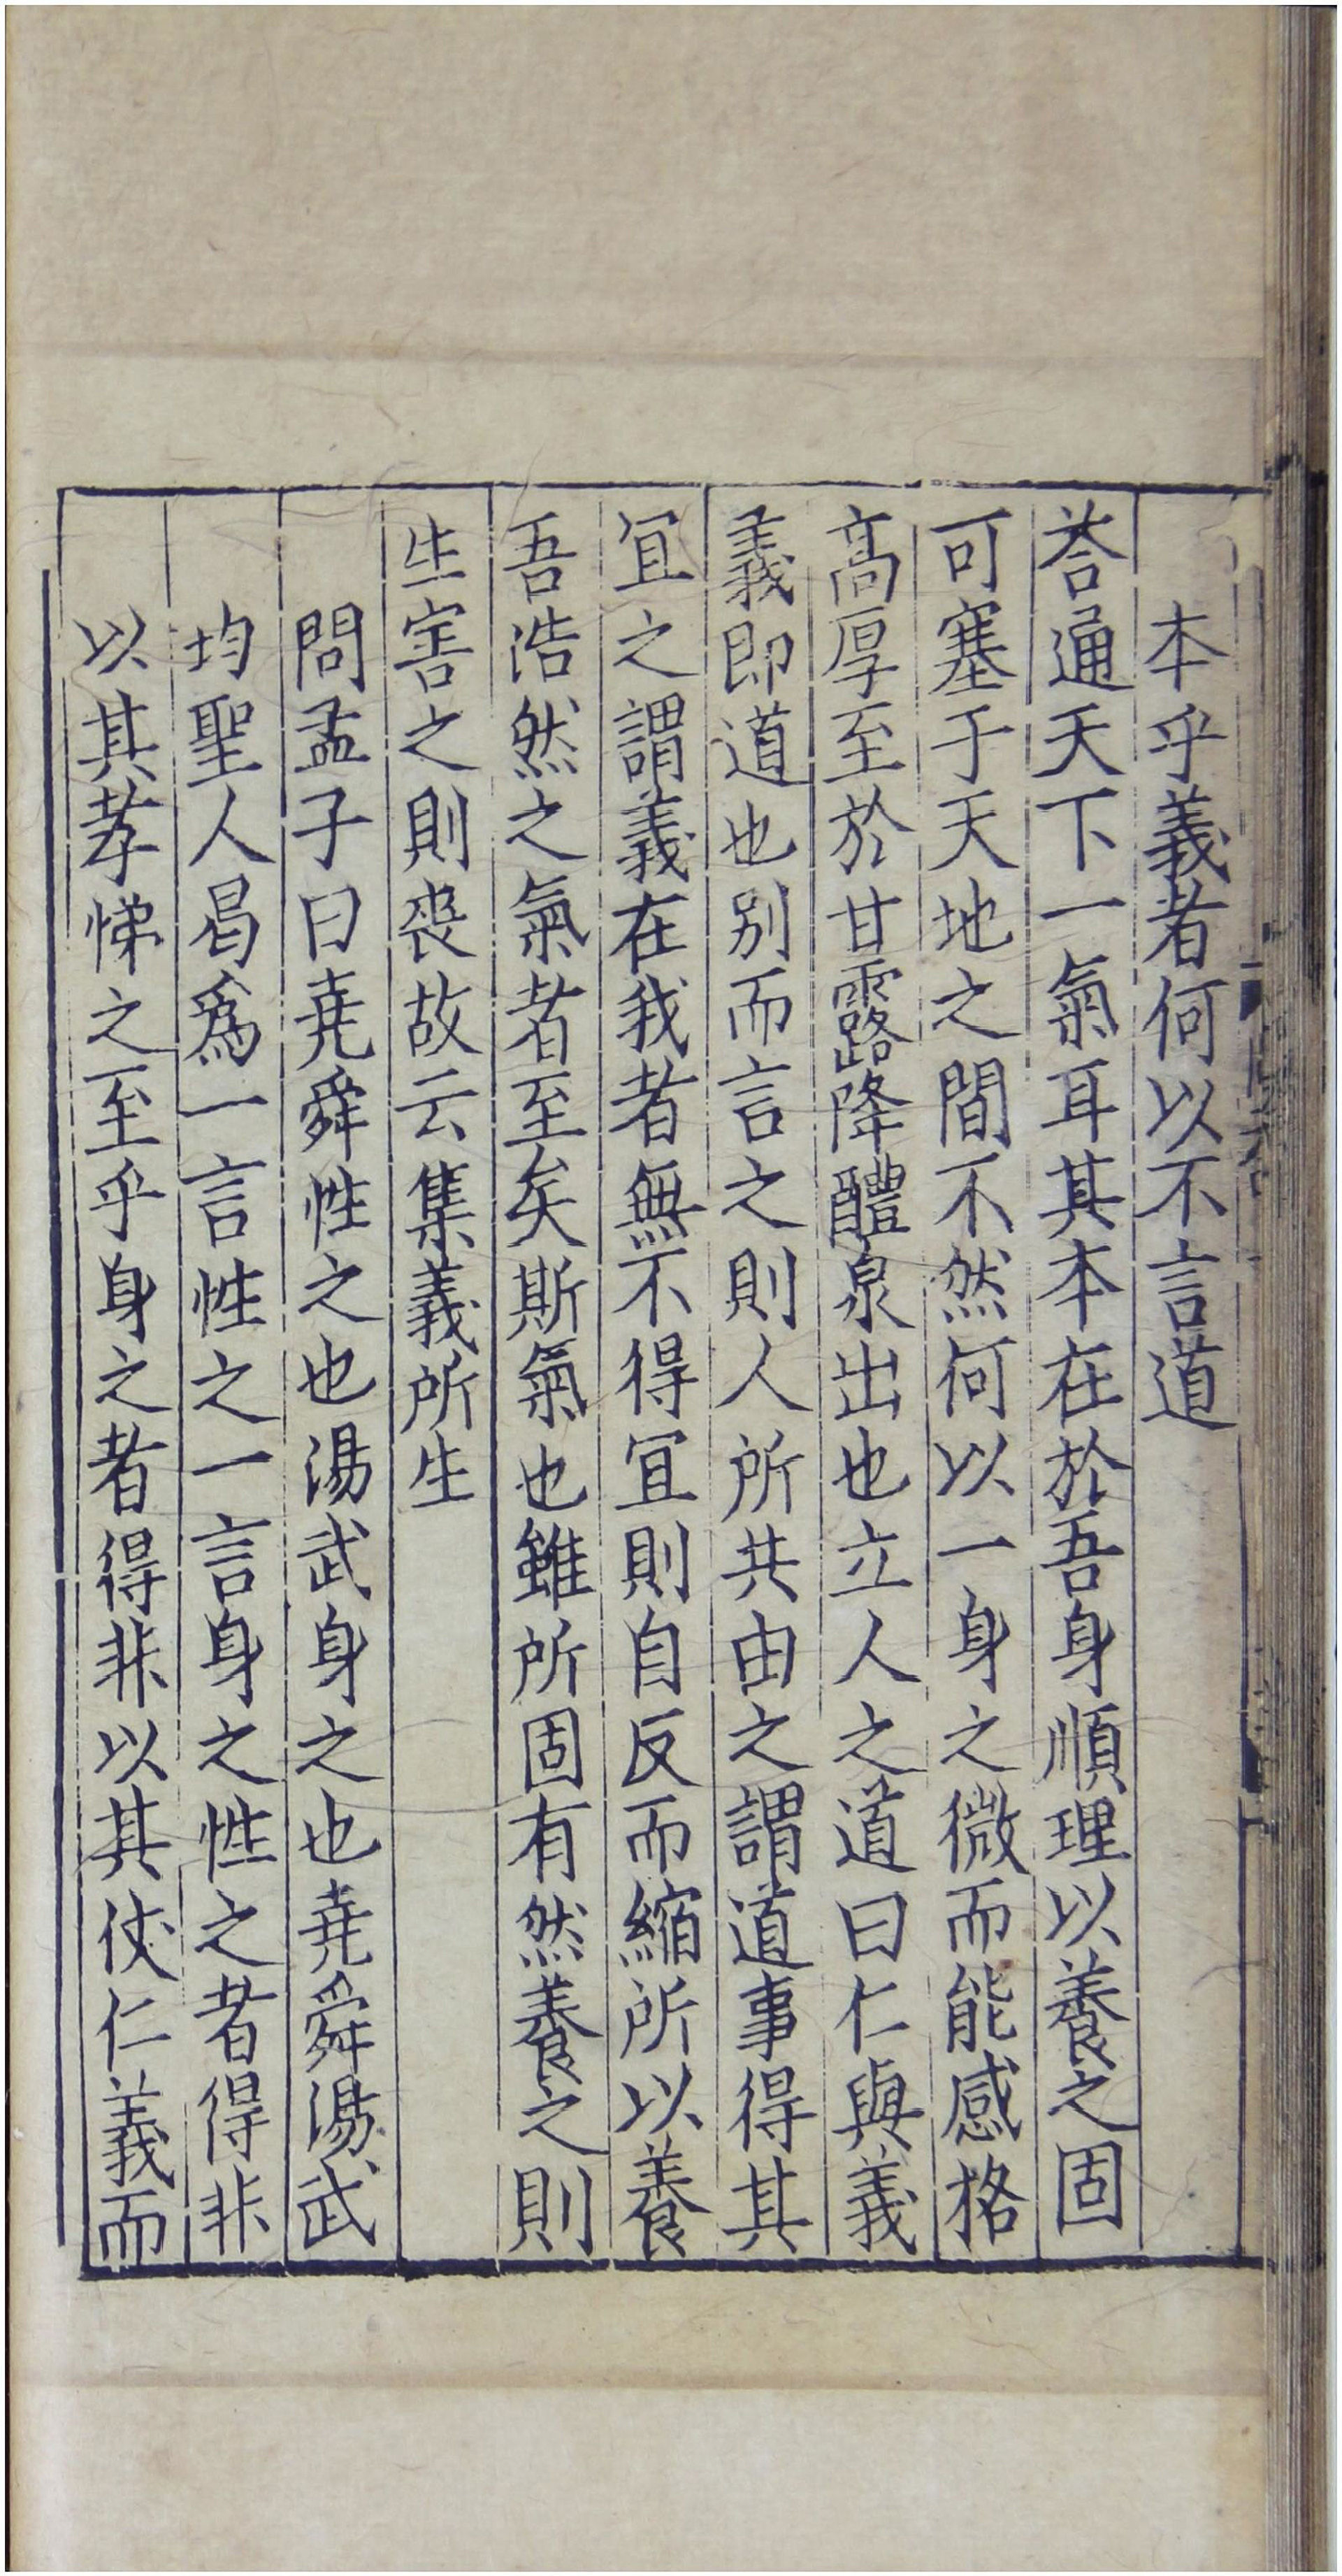 本乎義者何以不言道
荅通天下一氣耳其本在於吾身順理以養之固
可塞于天地之間不然何以一身之微而能感格
高厚至於甘露降醴泉出也立人之道曰仁與義
義即道也别而言之則人所共由之謂道事得其
宜之謂義在我者無不得宜則自反而縮所以養
吾浩然之氣者至矣斯氣也雖所固有然養之則
生害之則喪故云集義所生
問孟子曰堯舜性之也湯武身之也堯舜湯武
均聖人曷爲一言性之一言身之性之者得非
以其孝悌之至乎身之者得非以其仗仁義而